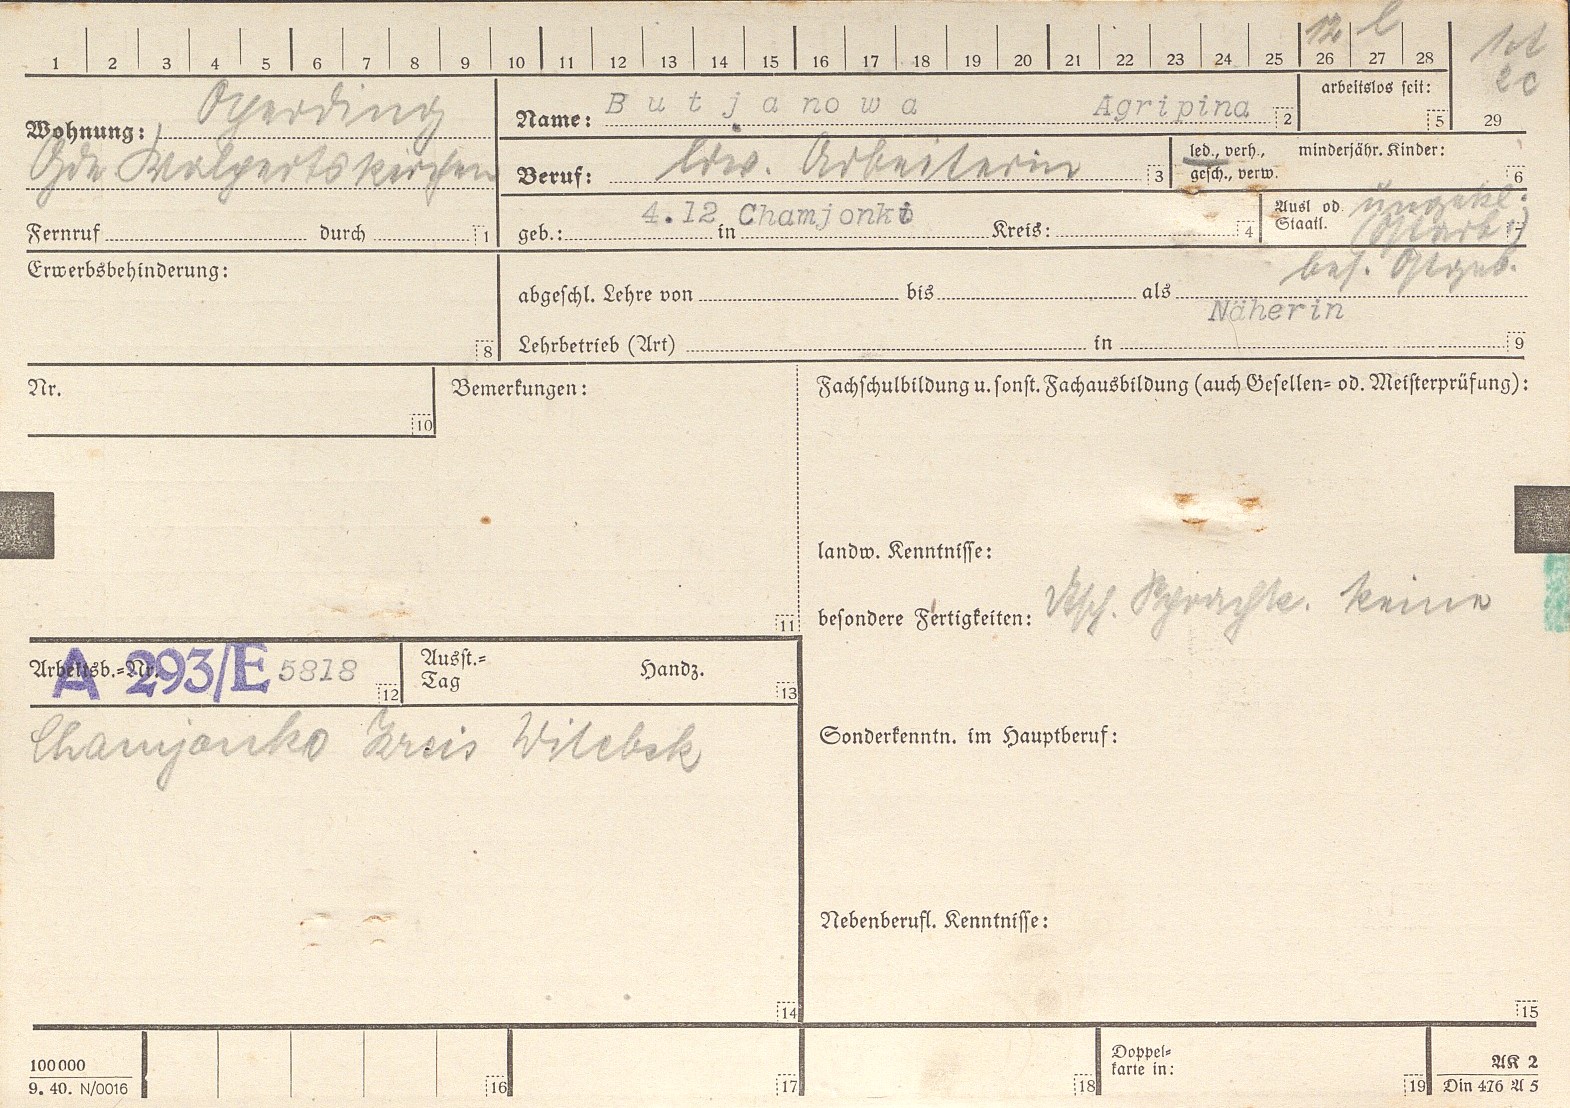 12 l
1 2 3 4 5 6 7 8 9 10 11 12 13 14 15 16 17 18 19 20 21 22 23 24 25 26 27 28 29
Wohnung: Operding
Gde Walpertskirchen
Fernruf durch 1
Name: Butjanowa Agripina 2
arbeitslos seit: 5
Beruf: ldw. Arbeiterin 3
led., verh., minderjähr. Kinder:
gesch., verw. 6
geb.: 4.12 in Chamjonki Kreis: 4
Ausl od. ungekl.
Staatl. (Ostarb.) 7
bes. Ostgeb.
Erwerbsbehinderung: 8
abgeschl. Lehre von bis als
Näherin
Lehrbetrieb (Art) in 9
Nr. 10
Bemerkungen: 11
Fachschulbildung u. sonst. Fachausbildung (auch Gesellen= od. Meisterprüfung):
landw. Kenntnisse:
besondere Fertigkeiten: dtsch. Sprachk. keine
Arbeitsb.=Nr. A 293/E 5818 12
Ausst.=
Tag Handz. 13
Chamjonko Kreis Witebsk
14
Sonderkenntn. im Hauptberuf:
Nebenberufl. Kenntnisse:
15
100000
9. 40. N/0016
16 17 18
Doppel=
karte in: 19
AK 2
Din 476 A 5